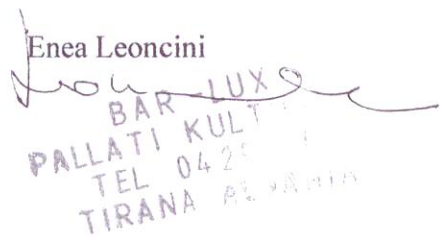 Enea Leoncini
BAR LUX
PALLATI KULT
TEL 042
TIRANA